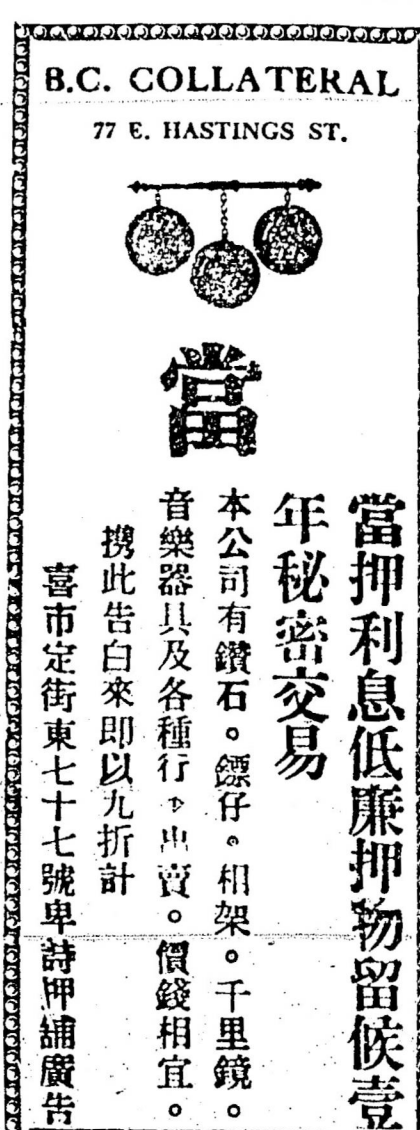 B.C. COLLATERAL
77 E. HASTINGS ST.
當
當押利息低廉押物留候壹
年秘密交易
本公司有鑽石。鏢仔。相架。千里鏡。
音樂器具及各種行 出賣。價錢相宜。
携此告白來即以九折計
喜市定街東七十七號卑詩押舖廣告